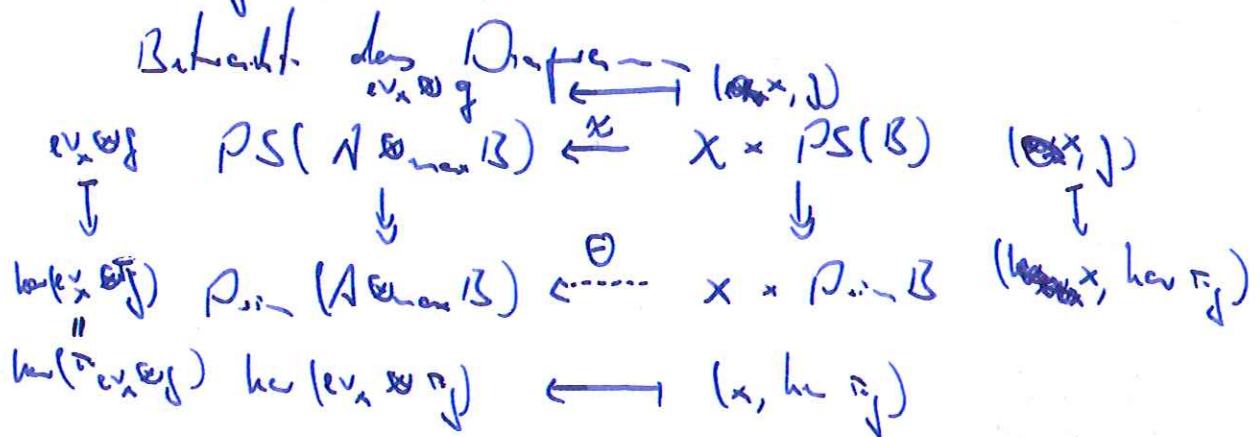 Betrachte das Diagramm
ev_x ⊗ g ⟵| (x, g)
ev_x ⊗ g PS(A ⊗_max B) ←χ X × PS(B) (x, g)
↧ ↡ ↡ ↧
ker(ev_x ⊗ π_g) Prim(A ⊗_max B) ⇠Θ X × Prim B (x, ker π_g)
=
ker(π_{ev_x ⊗ g}) ker(ev_x ⊗ π_g) ⟵| (x, ker π_g)